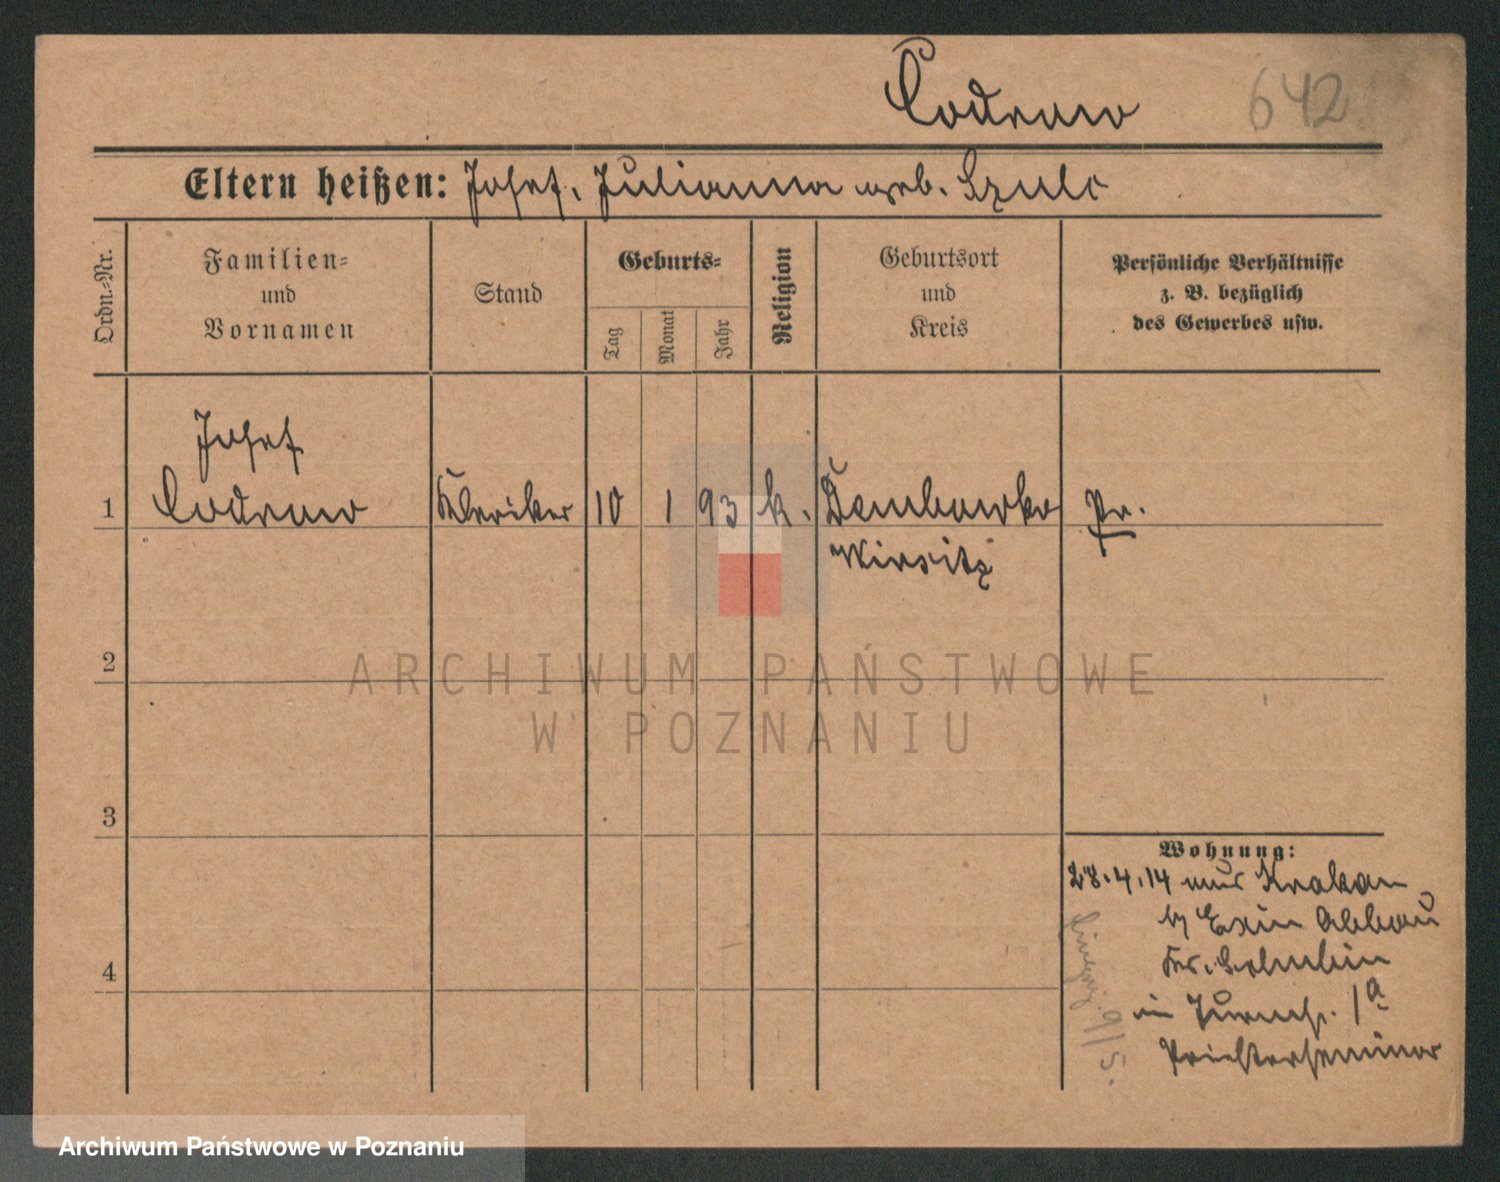 Codrow
642
Eltern heißen: Josef, Julianna geb. Szulc
Ordn.-Nr.
Familien-
und
Vornamen
Stand
Geburts-
Tag
Monat
Jahr
Religion
Geburtsort
und
Kreis
Persönliche Verhältnisse
z. B. bezüglich
des Gewerbes usw.
Josef
1 Codrow Kleriker 10 1 93 k. Dembowko Pr.
Wirsitz
2
3
4
Wohnung:
28.4.14 aus Krakau
by Exin Abbau
Kr. Schubin
in 1a
Priesterseminar
9/5.
ARCHIWUM PAŃSTWOWE
W POZNANIU
Archiwum Państwowe w Poznaniu